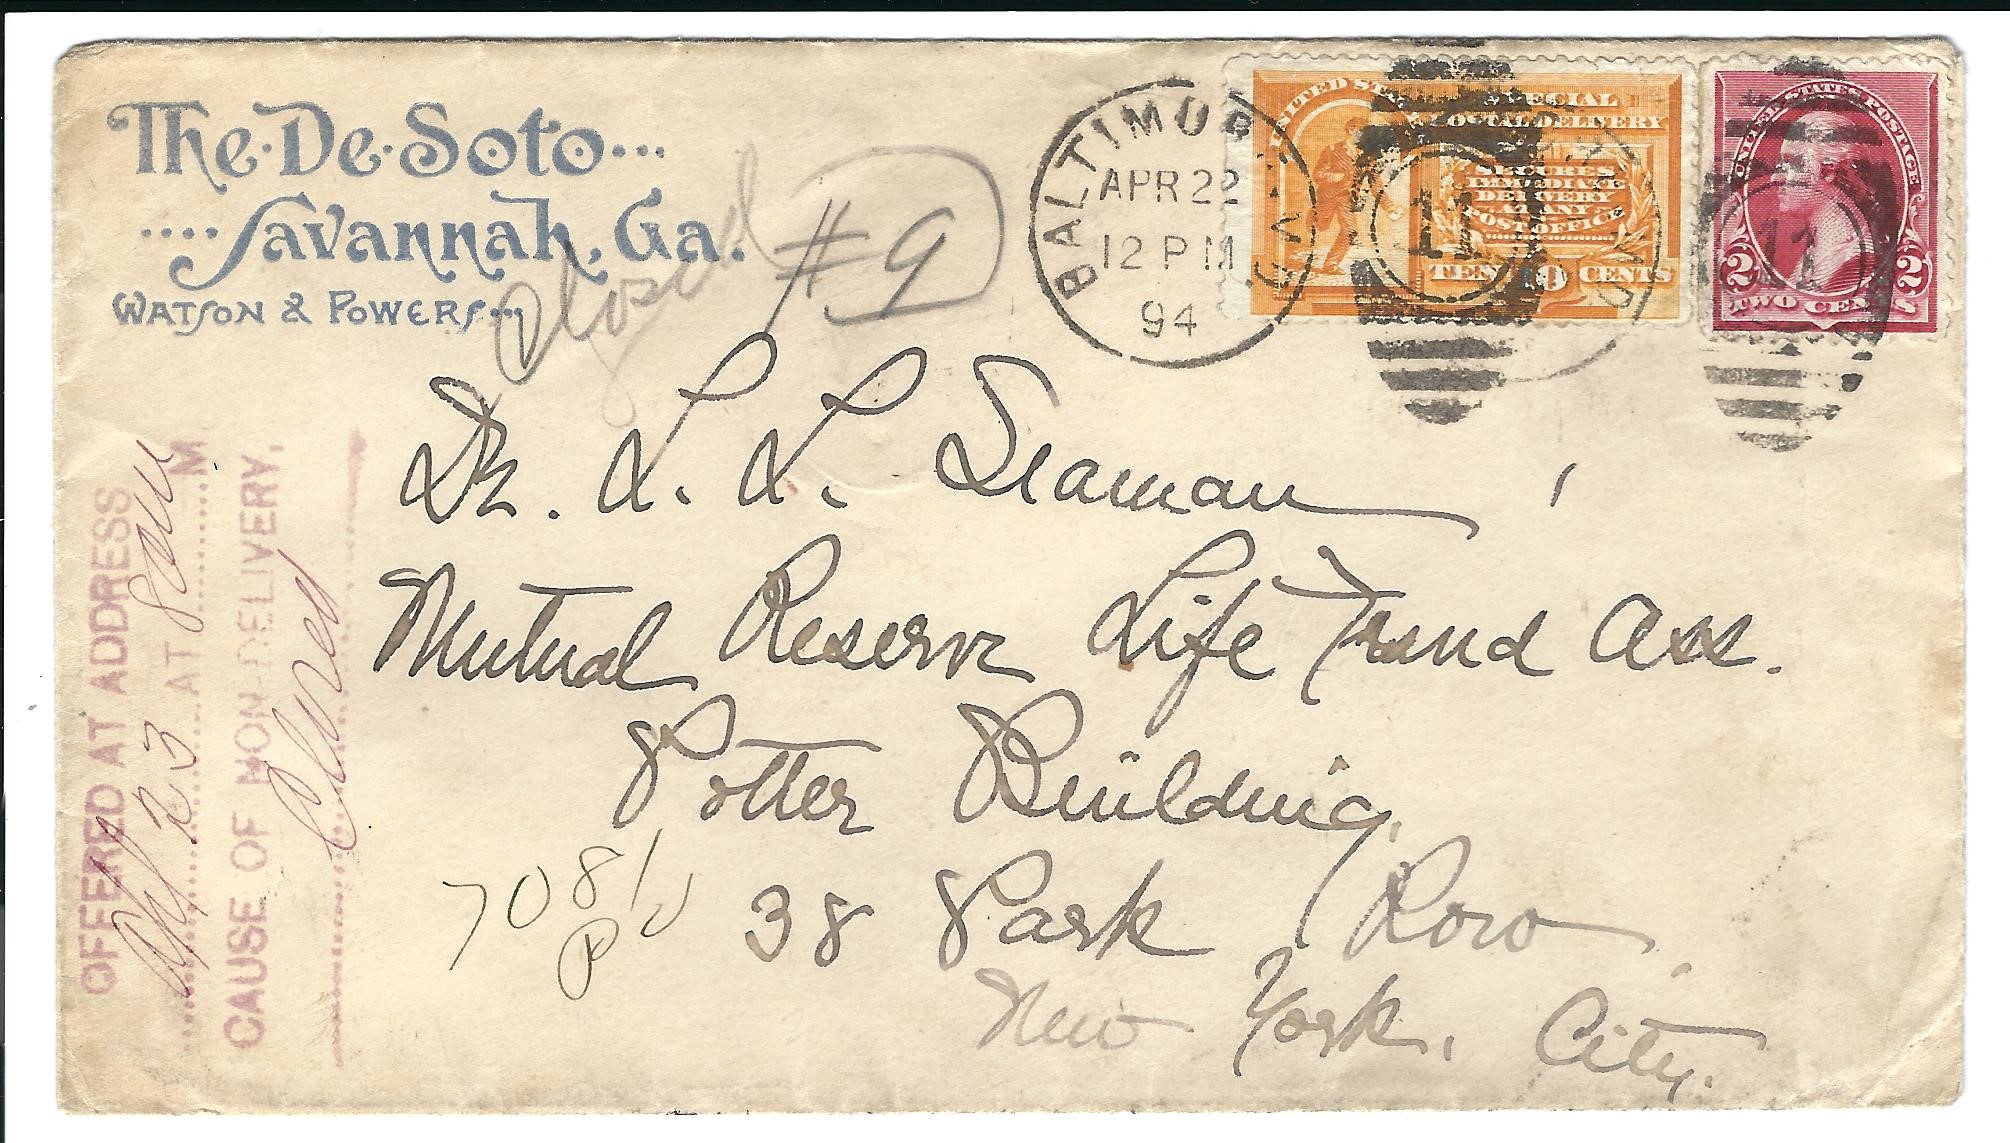 The·De·Soto...
....Savannah, Ga.
WATSON & POWERS...
Closed
#9
BALTIMORE
APR 22
12 PM
94
UNITED STATES SPECIAL
POSTAL DELIVERY
SECURES
IMMEDIATE
DELIVERY
AT ANY
POST OFFICE
TEN 10 CENTS
11
UNITED STATES POSTAGE
2 2
TWO CENTS
11
Dr. L. L. Seaman,
Mutual Reserve Life Fund Ass.
Potter Building,
38 Park Row,
New York, City.
7081
OFFERED AT ADDRESS
Apl 23 AT 8 M
CAUSE OF NON-DELIVERY,
Closed